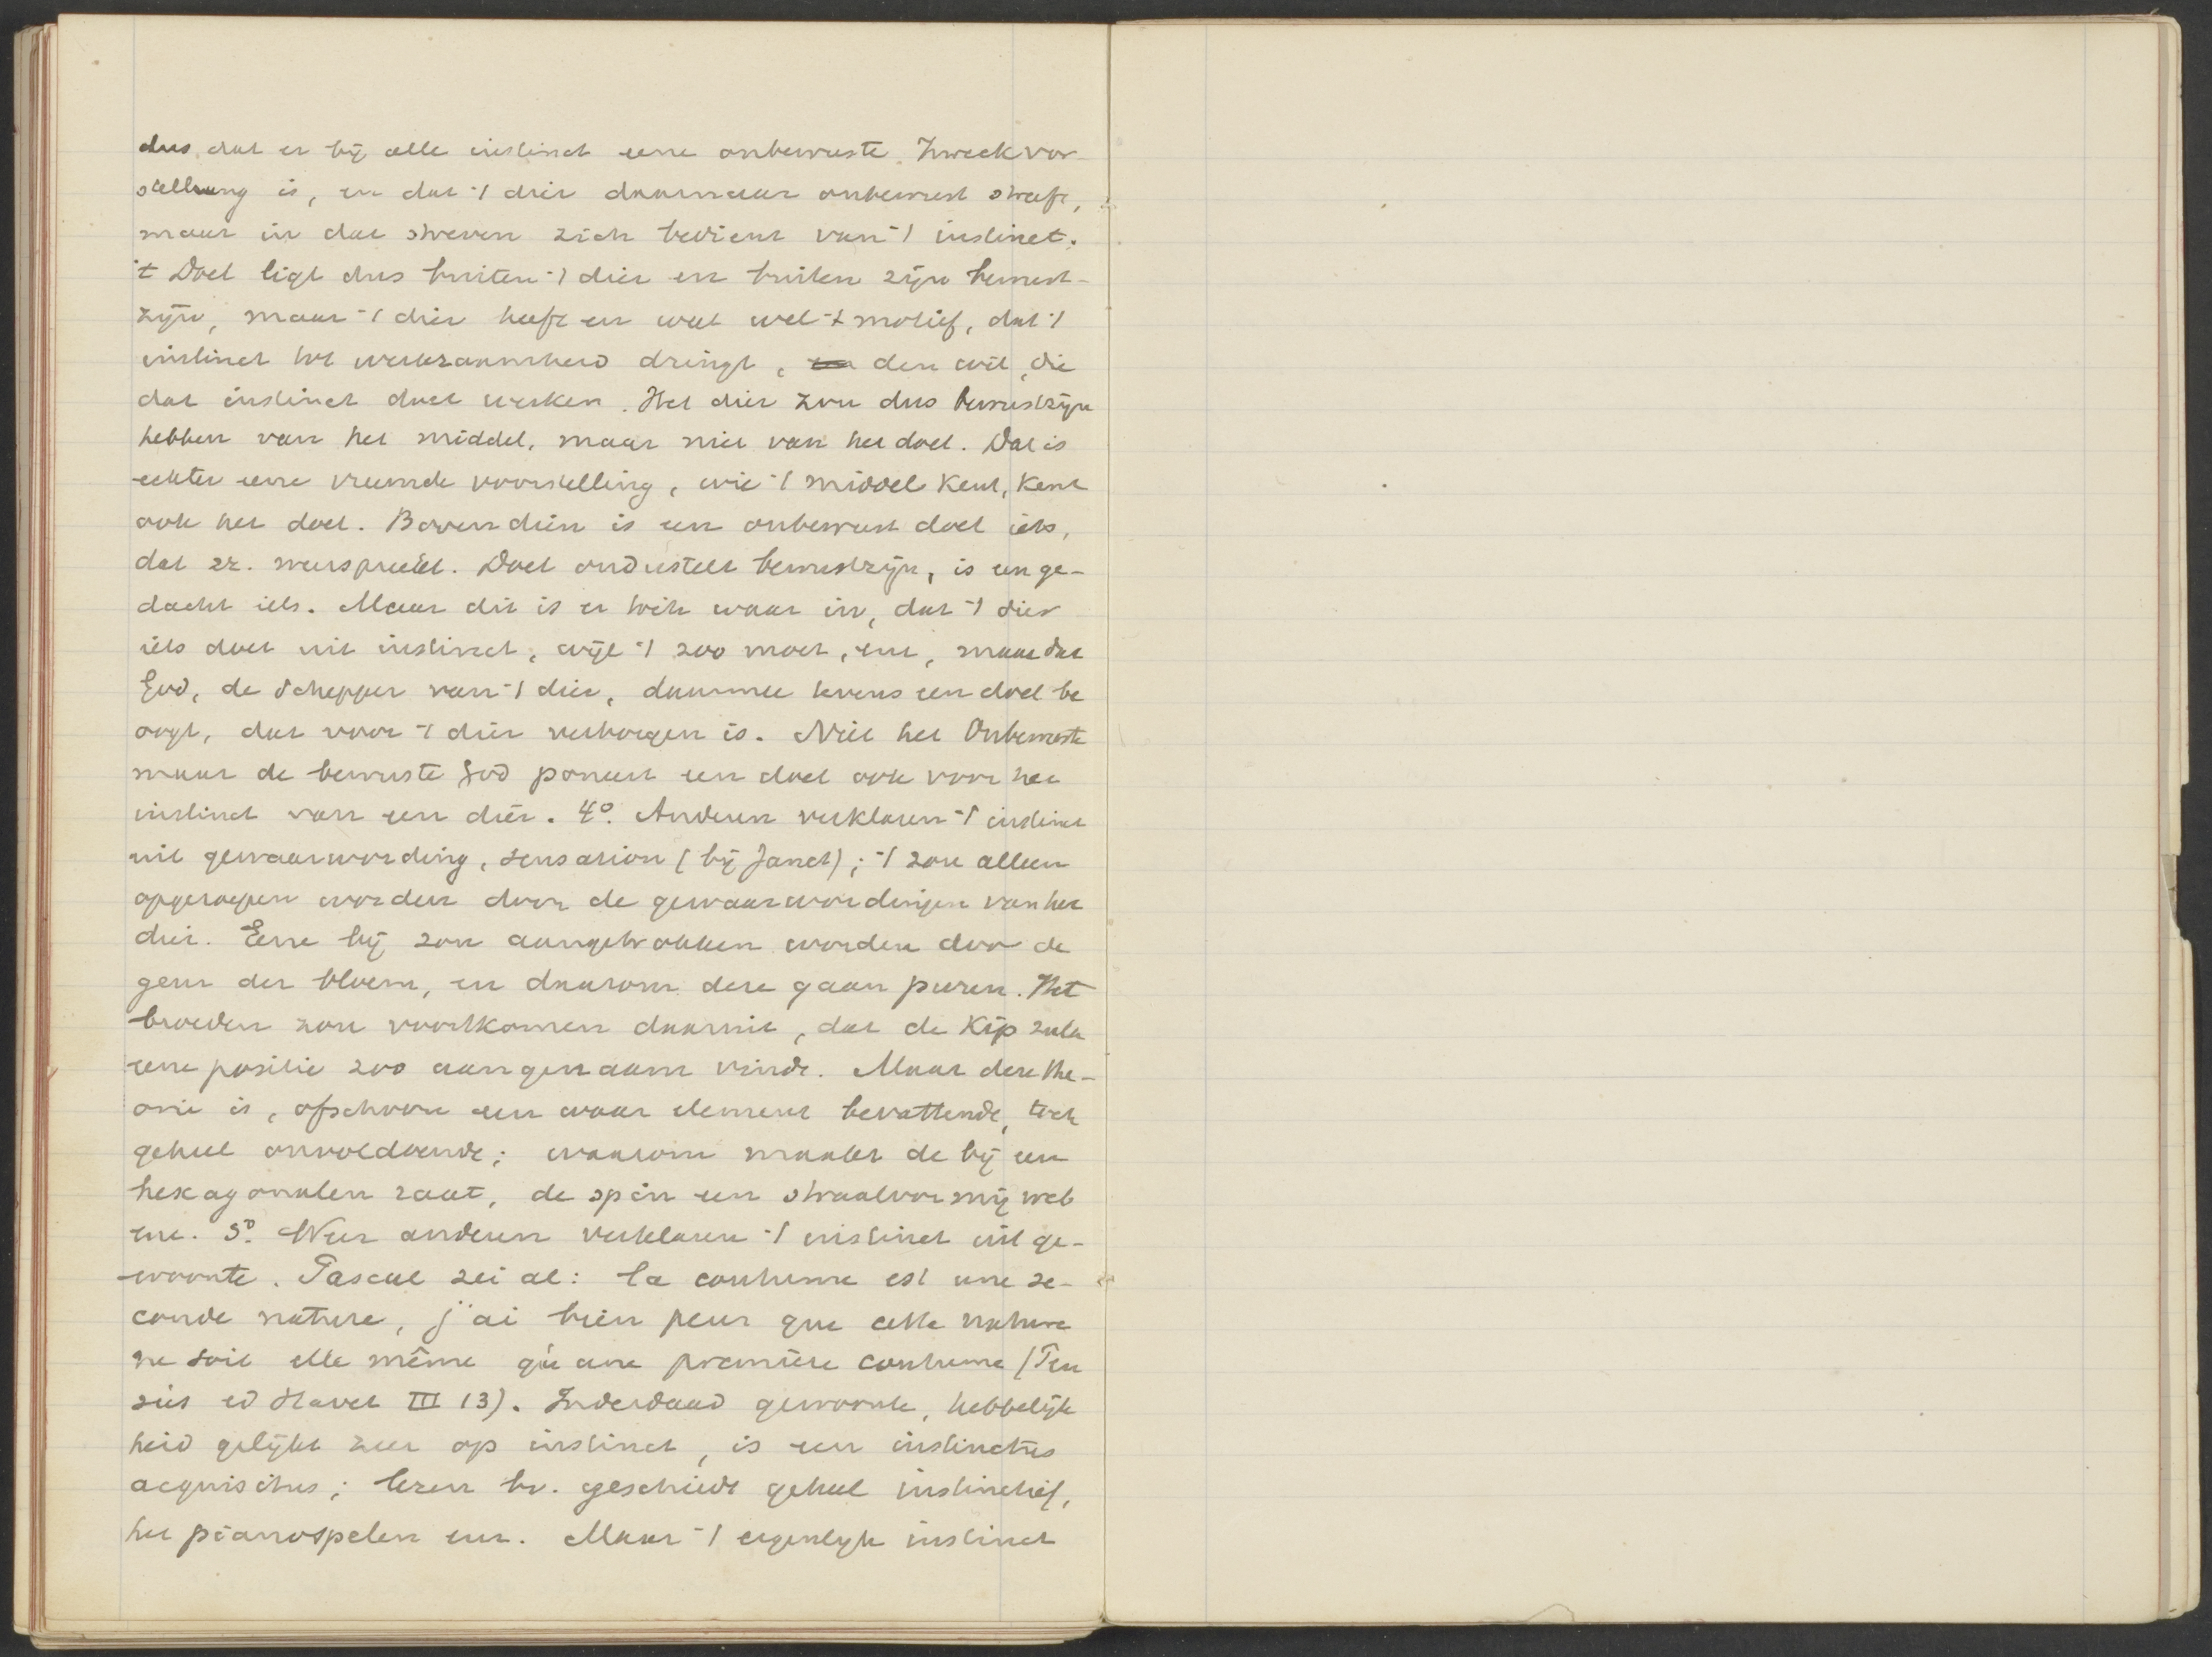 dus dat er bij alle instinct eene onbewuste Zweckvor-
stellung is, en dat 't dier daarnaar onbewust streeft,
maar in dat streven zich bedient van 't instinct.
't Doel ligt dus buiten 't dier en buiten zijn bewust-
zijn, maar 't dier heeft en weet wel 't motief, dat 't
instinct tot werkzaamheid dringt, den wil, die
dat instinct doet werken. Het dier zou dus bewustzijn
hebben van het middel, maar niet van het doel. Dat is
echter eene vreemde voorstelling, wie 't middel kent, kent
ook het doel. Bovendien is een onbewust doel iets,
dat zz. weerspreekt. Doel onderstelt bewustzijn, is een ge-
dacht iets. Maar dit is er toch waar in, dat 't dier
iets doet uit instinct, wijl 't zoo moet, enz, maar dat
God, de Schepper van 't dier, daarmee tevens een doel be
oogt, dat voor 't dier verborgen is. Niet het Onbewuste
maar de bewuste God poneert een doel ook voor het
instinct van een dier. 4º. Anderen verklaren 't instinct
uit gewaarwording, sensation (bij Janet); 't zou alleen
opgeroepen worden door de gewaarwordingen van het
dier. Eene bij zou aangetrokken worden door de
geur der bloem, en daarom deze gaan puren. Het
broeden zou voortkomen daaruit, dat de Kip zulk
eene positie zoo aangenaam vindt. Maar deze the-
orie is, ofschoon een waar element bevattende, toch
geheel onvoldoende; waarom maakt de bij een
hexagonalen raat, de spin een straalvormig web
enz. 5º. Weer anderen verklaren 't instinct uit ge-
woonte. Pascal zei al: la coutume est une se-
conde nature, j'ai bien peur que cette nature
ne soit elle même qu'une première coutume (Pen
sées ed Havet III 13). Inderdaad gewoonte, hebbelijk
heid gelijkt zeer op instinct, is een instinctus
acquisitus; lezen bv. geschiedt geheel instinctief,
het pianospelen enz. Maar 't eigenlijk instinct